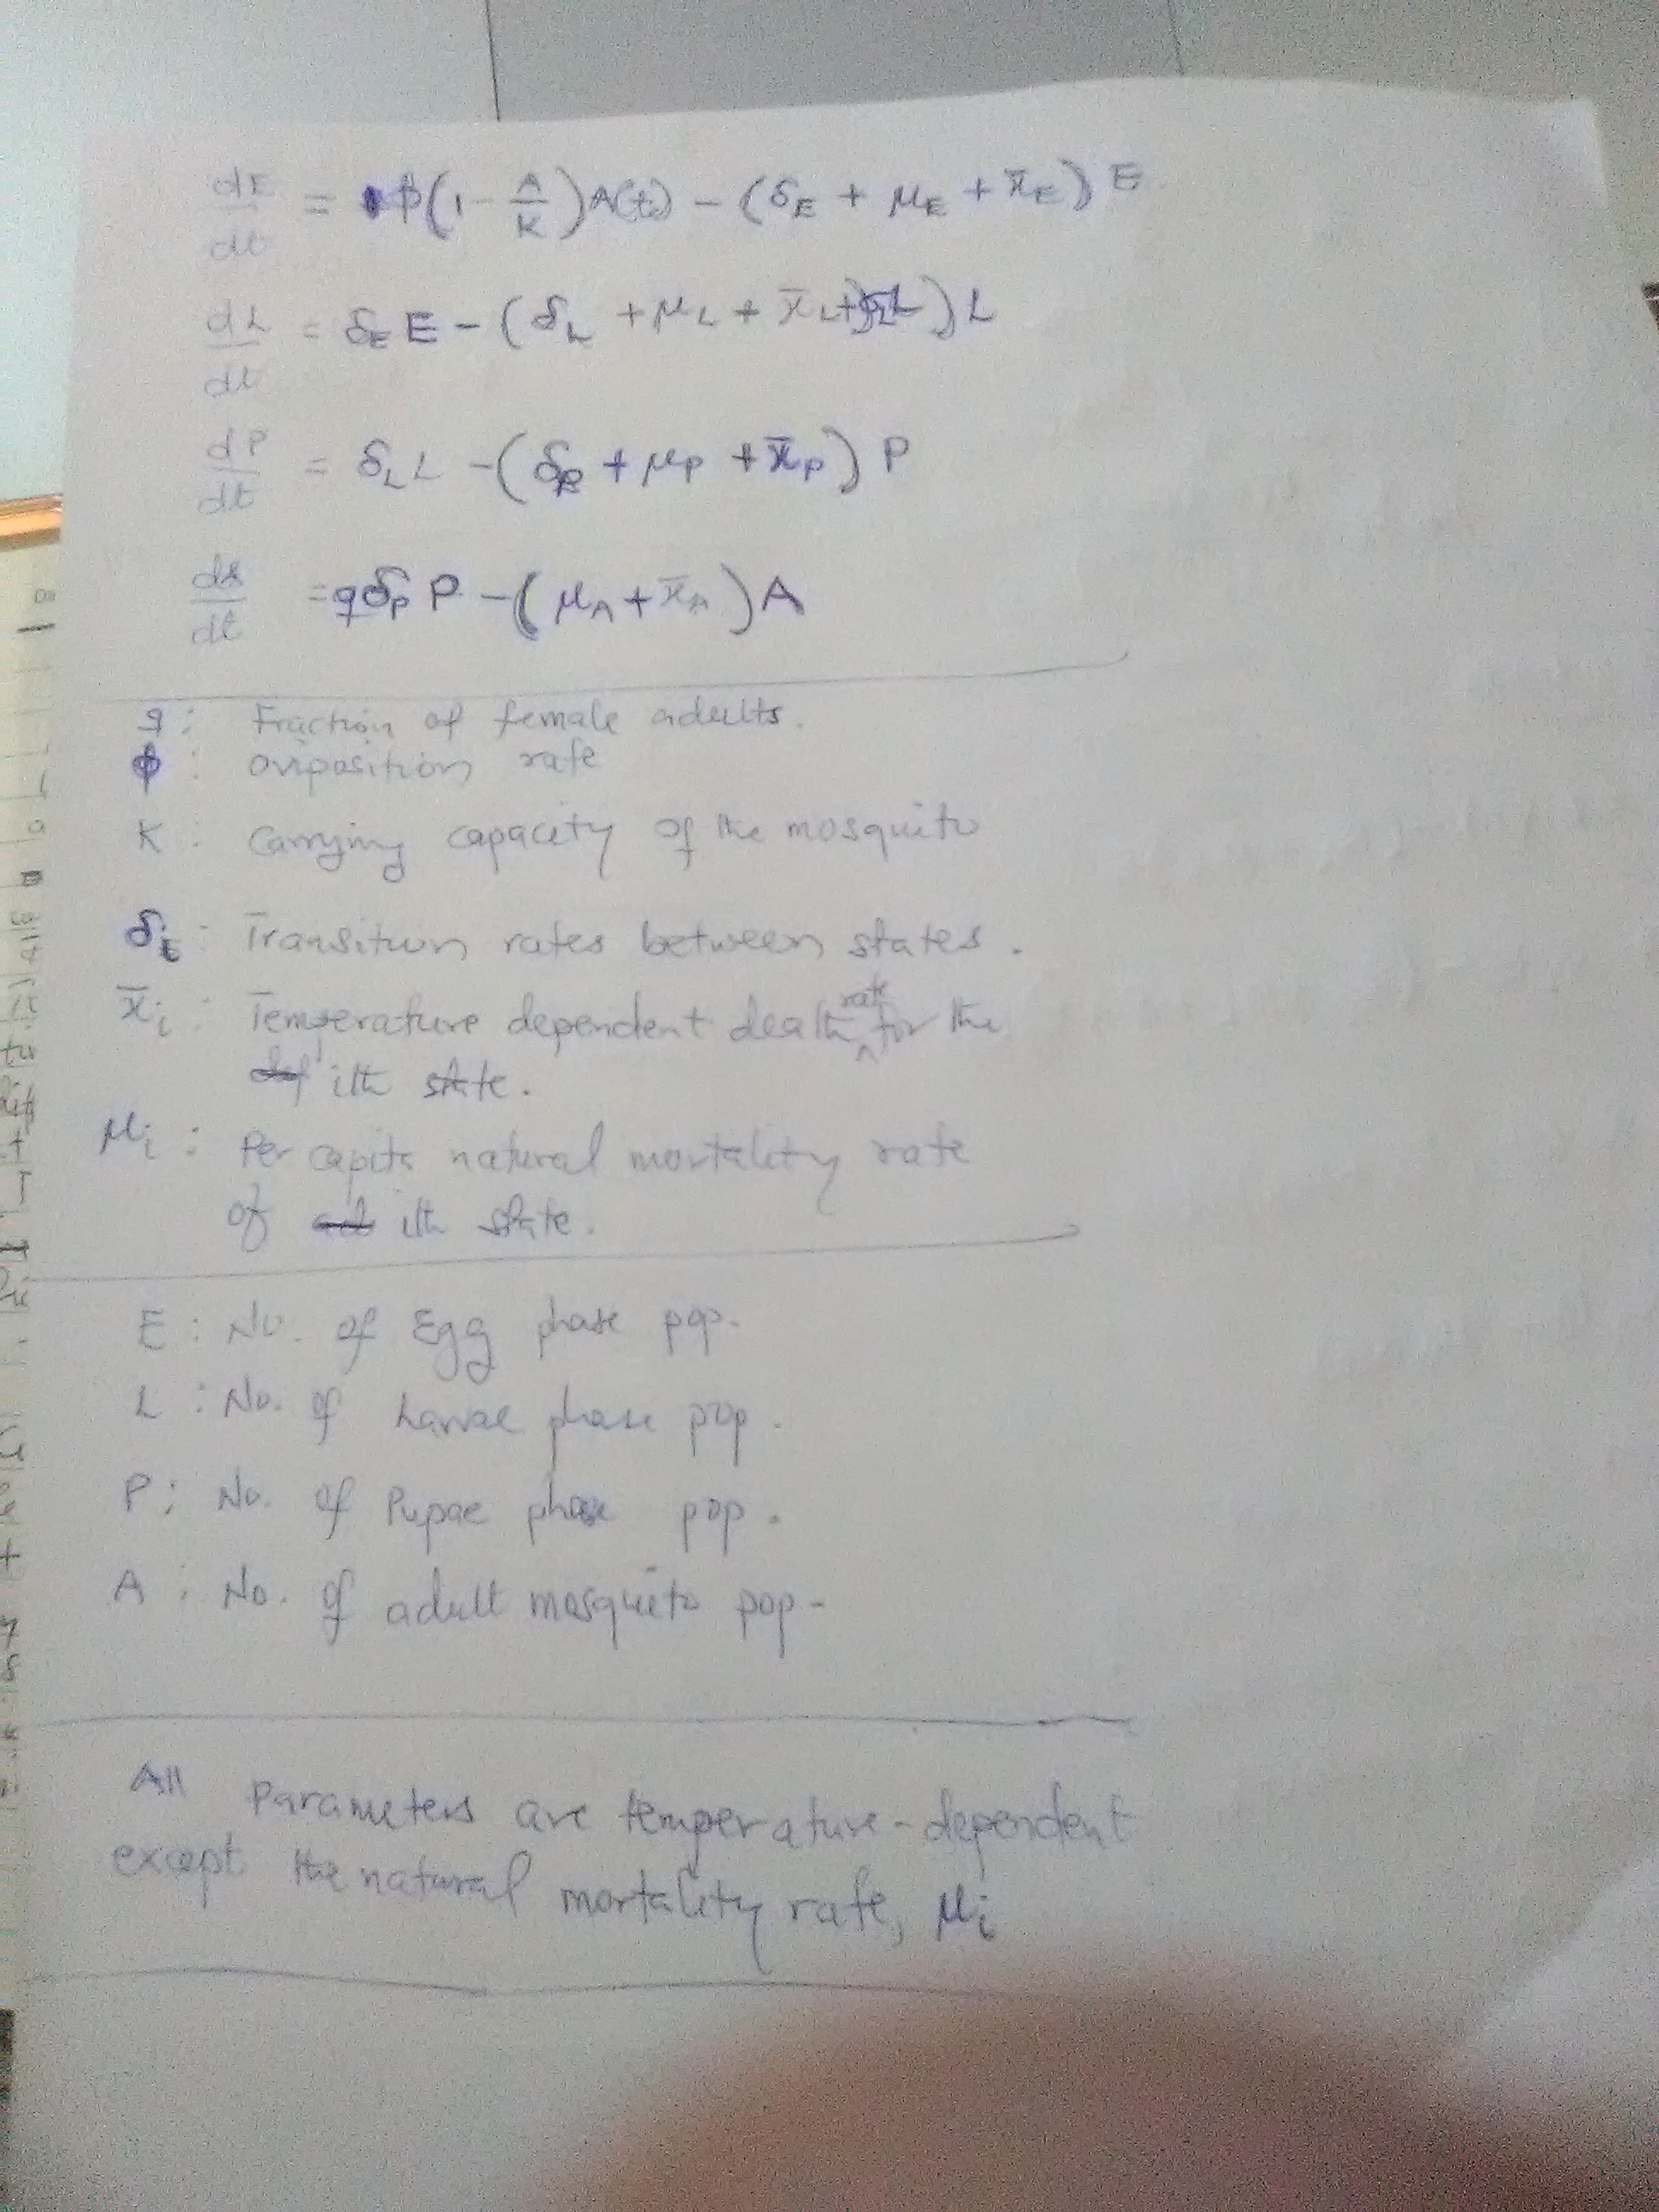 dE/dt = ϕ(1 - A/K)A(t) - (δ_E + μ_E + π̄_E) E
dL/dt = δ_E E - (δ_L + μ_L + π̄_L + ) L
dP/dt = δ_L L - (δ_P + μ_P + π̄_P) P
dA/dt = qδ_P P - (μ_A + π̄_A) A
q: Fraction of female adults.
ϕ: oviposition rate
K: Carrying capacity of the mosquito
δ_i: Transition rates between states.
π̄_i: Temperature dependent death rate for the
ith state.
μ_i: Per capita natural mortality rate
of ith state.
E: No. of Egg phase pop.
L: No. of Larvae phase pop.
P: No. of Pupae phase pop.
A: No. of adult mosquito pop-
All Parameters are temperature-dependent
except the natural mortality rate, μ_i